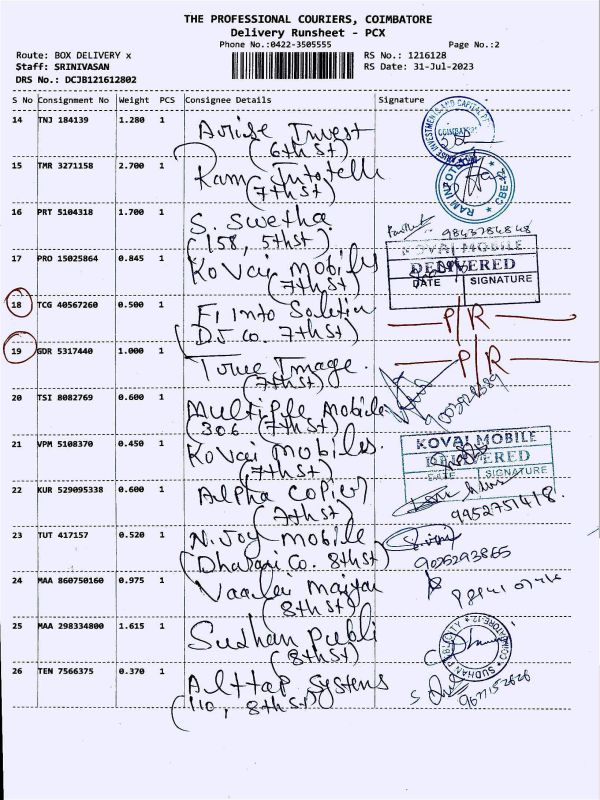 THE PROFESSIONAL COURIERS, COIMBATORE
Delivery Runsheet - PCX
Phone No.:0422-3505555 Page No.:2
Route: BOX DELIVERY x RS No.: 1216128
Staff: SRINIVASAN RS Date: 31-Jul-2023
DRS No.: DCJB121612802
S No Consignment No Weight PCS Consignee Details Signature
14 TNJ 184139 1.280 1 Arise Invest
(6th St)
15 TMR 3271158 2.700 1 Ram Infotelli
(7th St)
16 PRT 5104318 1.700 1 S. Swetha
(158, 5th St) 9843784848
17 PRO 15025864 0.845 1 Kovai Mobiles
(7th St)
KOVAI MOBILE
DELIVERED
DATE SIGNATURE
18 TCG 40567260 0.500 1
DJ Co. 7th St) P/R
19 GDR 5317440 1.000 1 True Image P/R
(7th St)
20 TSI 8082769 0.600 1 Multiple Mobile
(306 (7th St)
21 VPM 5108370 0.450 1 Kovai Mobiles.
(7th St)
KOVAI MOBILE
DELIVERED
DATE SIGNATURE
22 KUR 529095338 0.600 1 Alpha Copier
(7th St) 9952751418.
23 TUT 417157 0.520 1 N. Joy Mobile
(Dharani Co. 8th St) 9025293865
24 MAA 860750160 0.975 1
(8th St)
25 MAA 298334800 1.615 1 Sudhan Publi
(8th St)
26 TEN 7566375 0.370 1 Alttap Systems
(110, 8th St) 9677152626